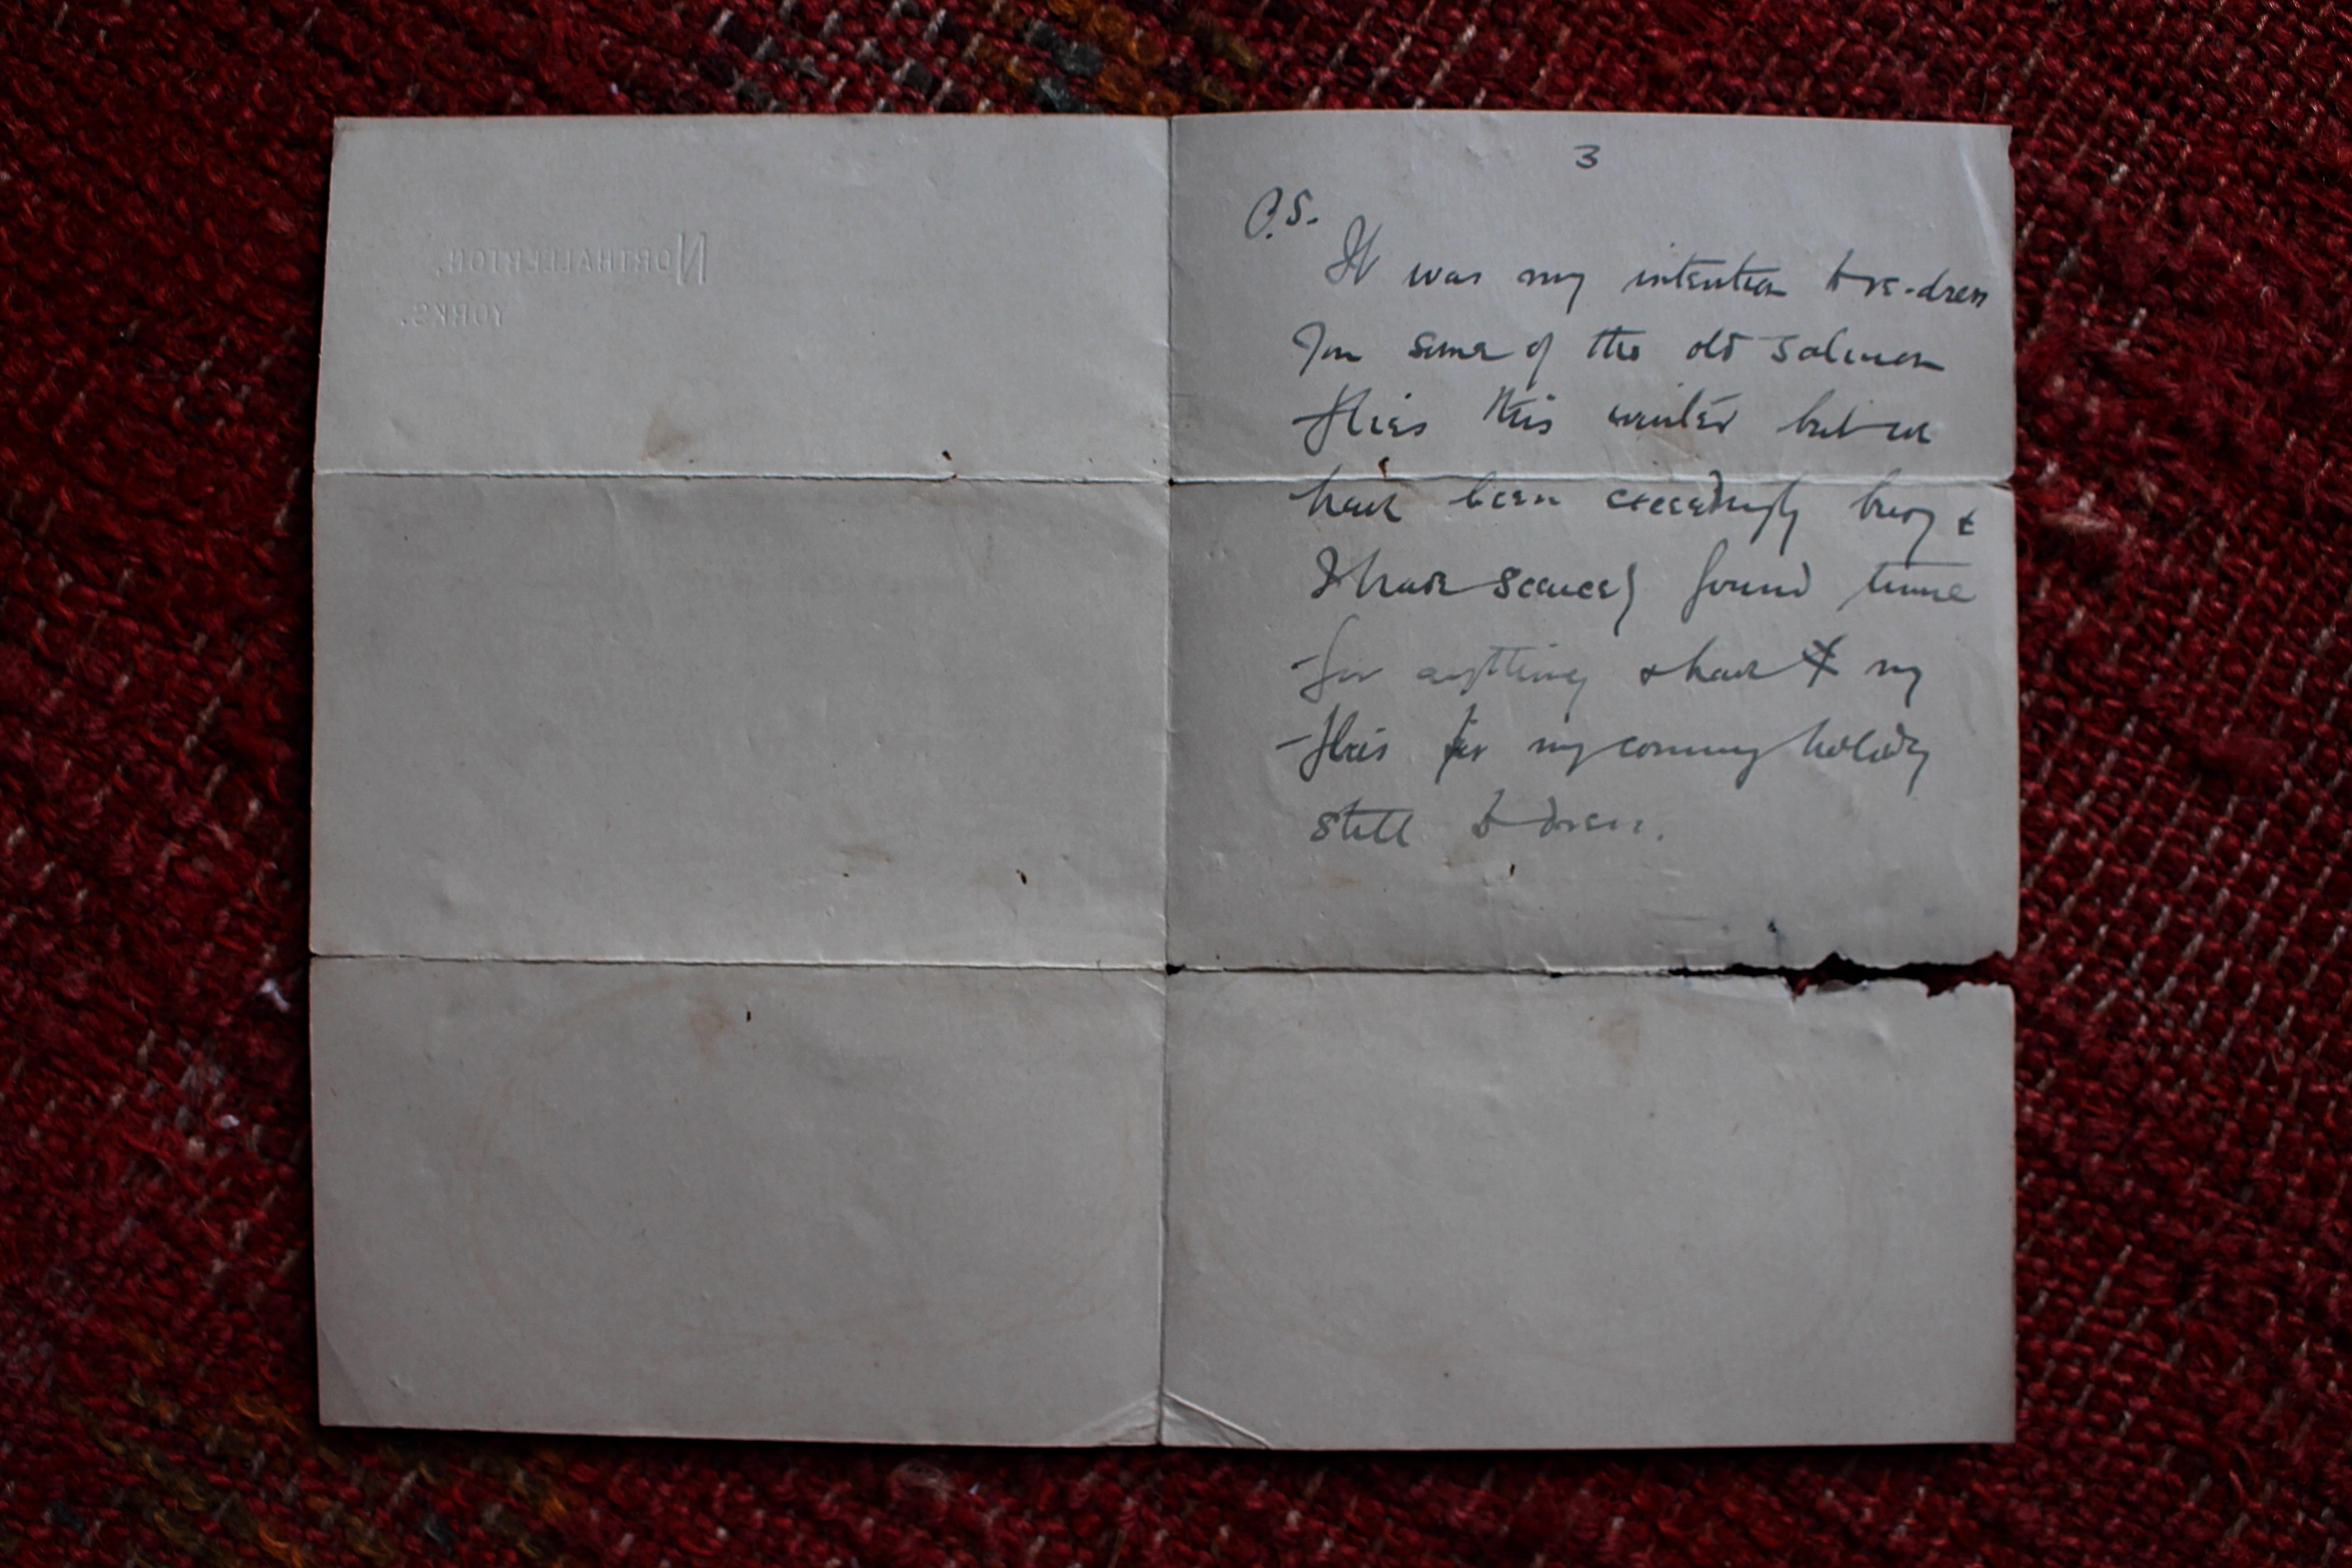 NORTHALLERTON,
YORKS.
3
P.S.
It was my intention to re-dress
you some of the old salmon
flies this winter but we
have been exceedingly busy &
I have scarcely found time
for anything & have my
flies for my coming holiday
still to dress.